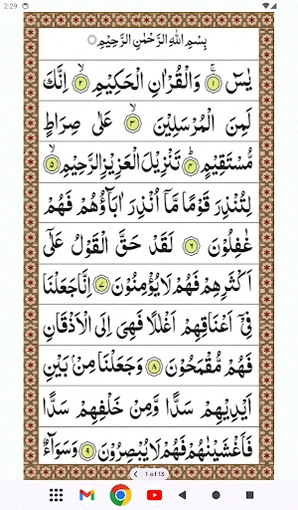 2:29
بِسْمِ اللهِ الرَّحْمٰنِ الرَّحِيْمِ
يٰسٓ ۚ ﴿۱﴾ وَالْقُرْاٰنِ الْحَكِيْمِ ۙ ﴿۲﴾ اِنَّكَ
لَمِنَ الْمُرْسَلِيْنَ ۙ ﴿۳﴾ عَلٰى صِرَاطٍ
مُّسْتَقِيْمٍ ؕ ﴿۴﴾ تَنْزِيْلَ الْعَزِيْزِ الرَّحِيْمِ ۙ ﴿۵﴾
لِتُنْذِرَ قَوْمًا مَّاۤ اُنْذِرَ اٰبَآؤُهُمْ فَهُمْ
غٰفِلُوْنَ ﴿۶﴾ لَقَدْ حَقَّ الْقَوْلُ عَلٰٓى
اَكْثَرِهِمْ فَهُمْ لَا يُؤْمِنُوْنَ ﴿۷﴾ اِنَّا جَعَلْنَا
فِيْۤ اَعْنَاقِهِمْ اَغْلٰلًا فَهِىَ اِلَى الْاَذْقَانِ
فَهُمْ مُّقْمَحُوْنَ ﴿۸﴾ وَجَعَلْنَا مِنْۢ بَيْنِ
اَيْدِيْهِمْ سَدًّا وَّمِنْ خَلْفِهِمْ سَدًّا
فَاَغْشَيْنٰهُمْ فَهُمْ لَا يُبْصِرُوْنَ ﴿۹﴾ وَسَوَآءٌ
1 of 13